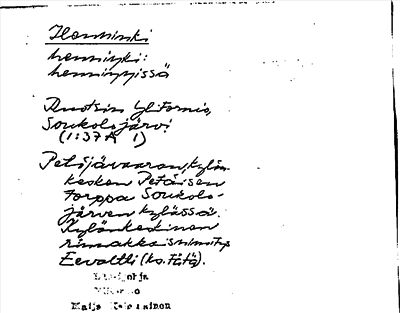 Henninki
henninki:
henningissä
Ruotsin Ylitornio,
Soukolojärvi
(1:37 A 1)
Petäjävaaran, kylän
kesken Petäisen
torppa Soukolo-
järven kylässä.
Kylänkeskinen
rinnakkaisnimitys
Eevaltti (ks. tätä).
Maija